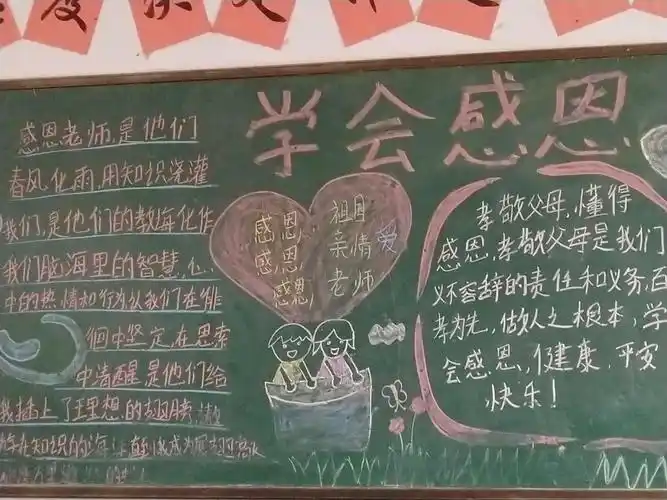 学会感恩
感恩老师,是他们
春风化雨,用知识浇灌
我们,是他们的教海化作
我们脑海里的智慧,心
中的热情和行为从我们在徘
徊中坚定,在思索
中清醒,是他们给
我插上了理想的翅膀
感恩 祖国
感恩 亲情
感恩 老师
爱
孝敬父母,懂得
感恩,孝敬父母是我们
义不容辞的责任和义务,百
孝为先,做人之根本,学
会感恩,健康,平安
快乐!